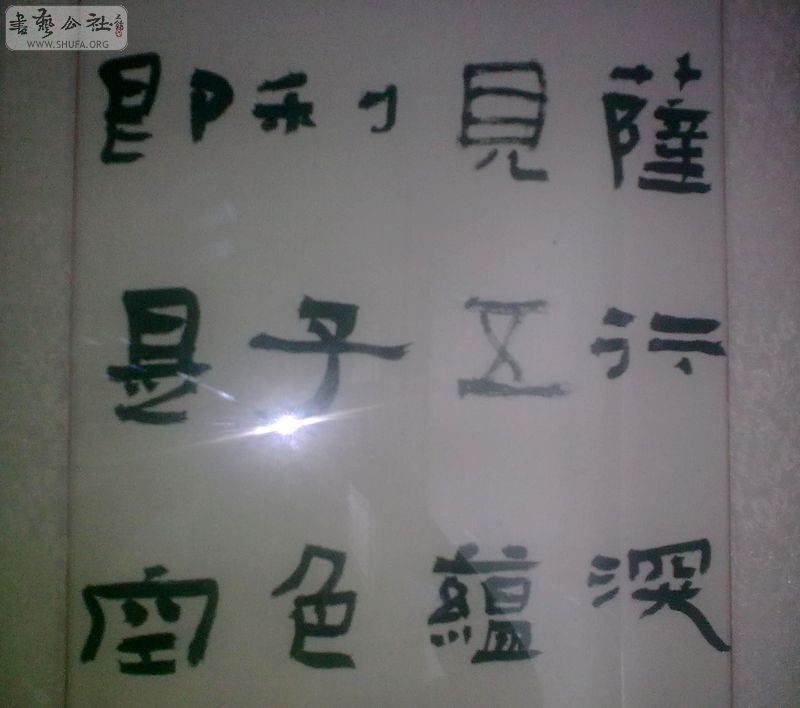 薩行深
見五蘊
利子色
即是空
書藝公社
WWW.SHUFA.ORG